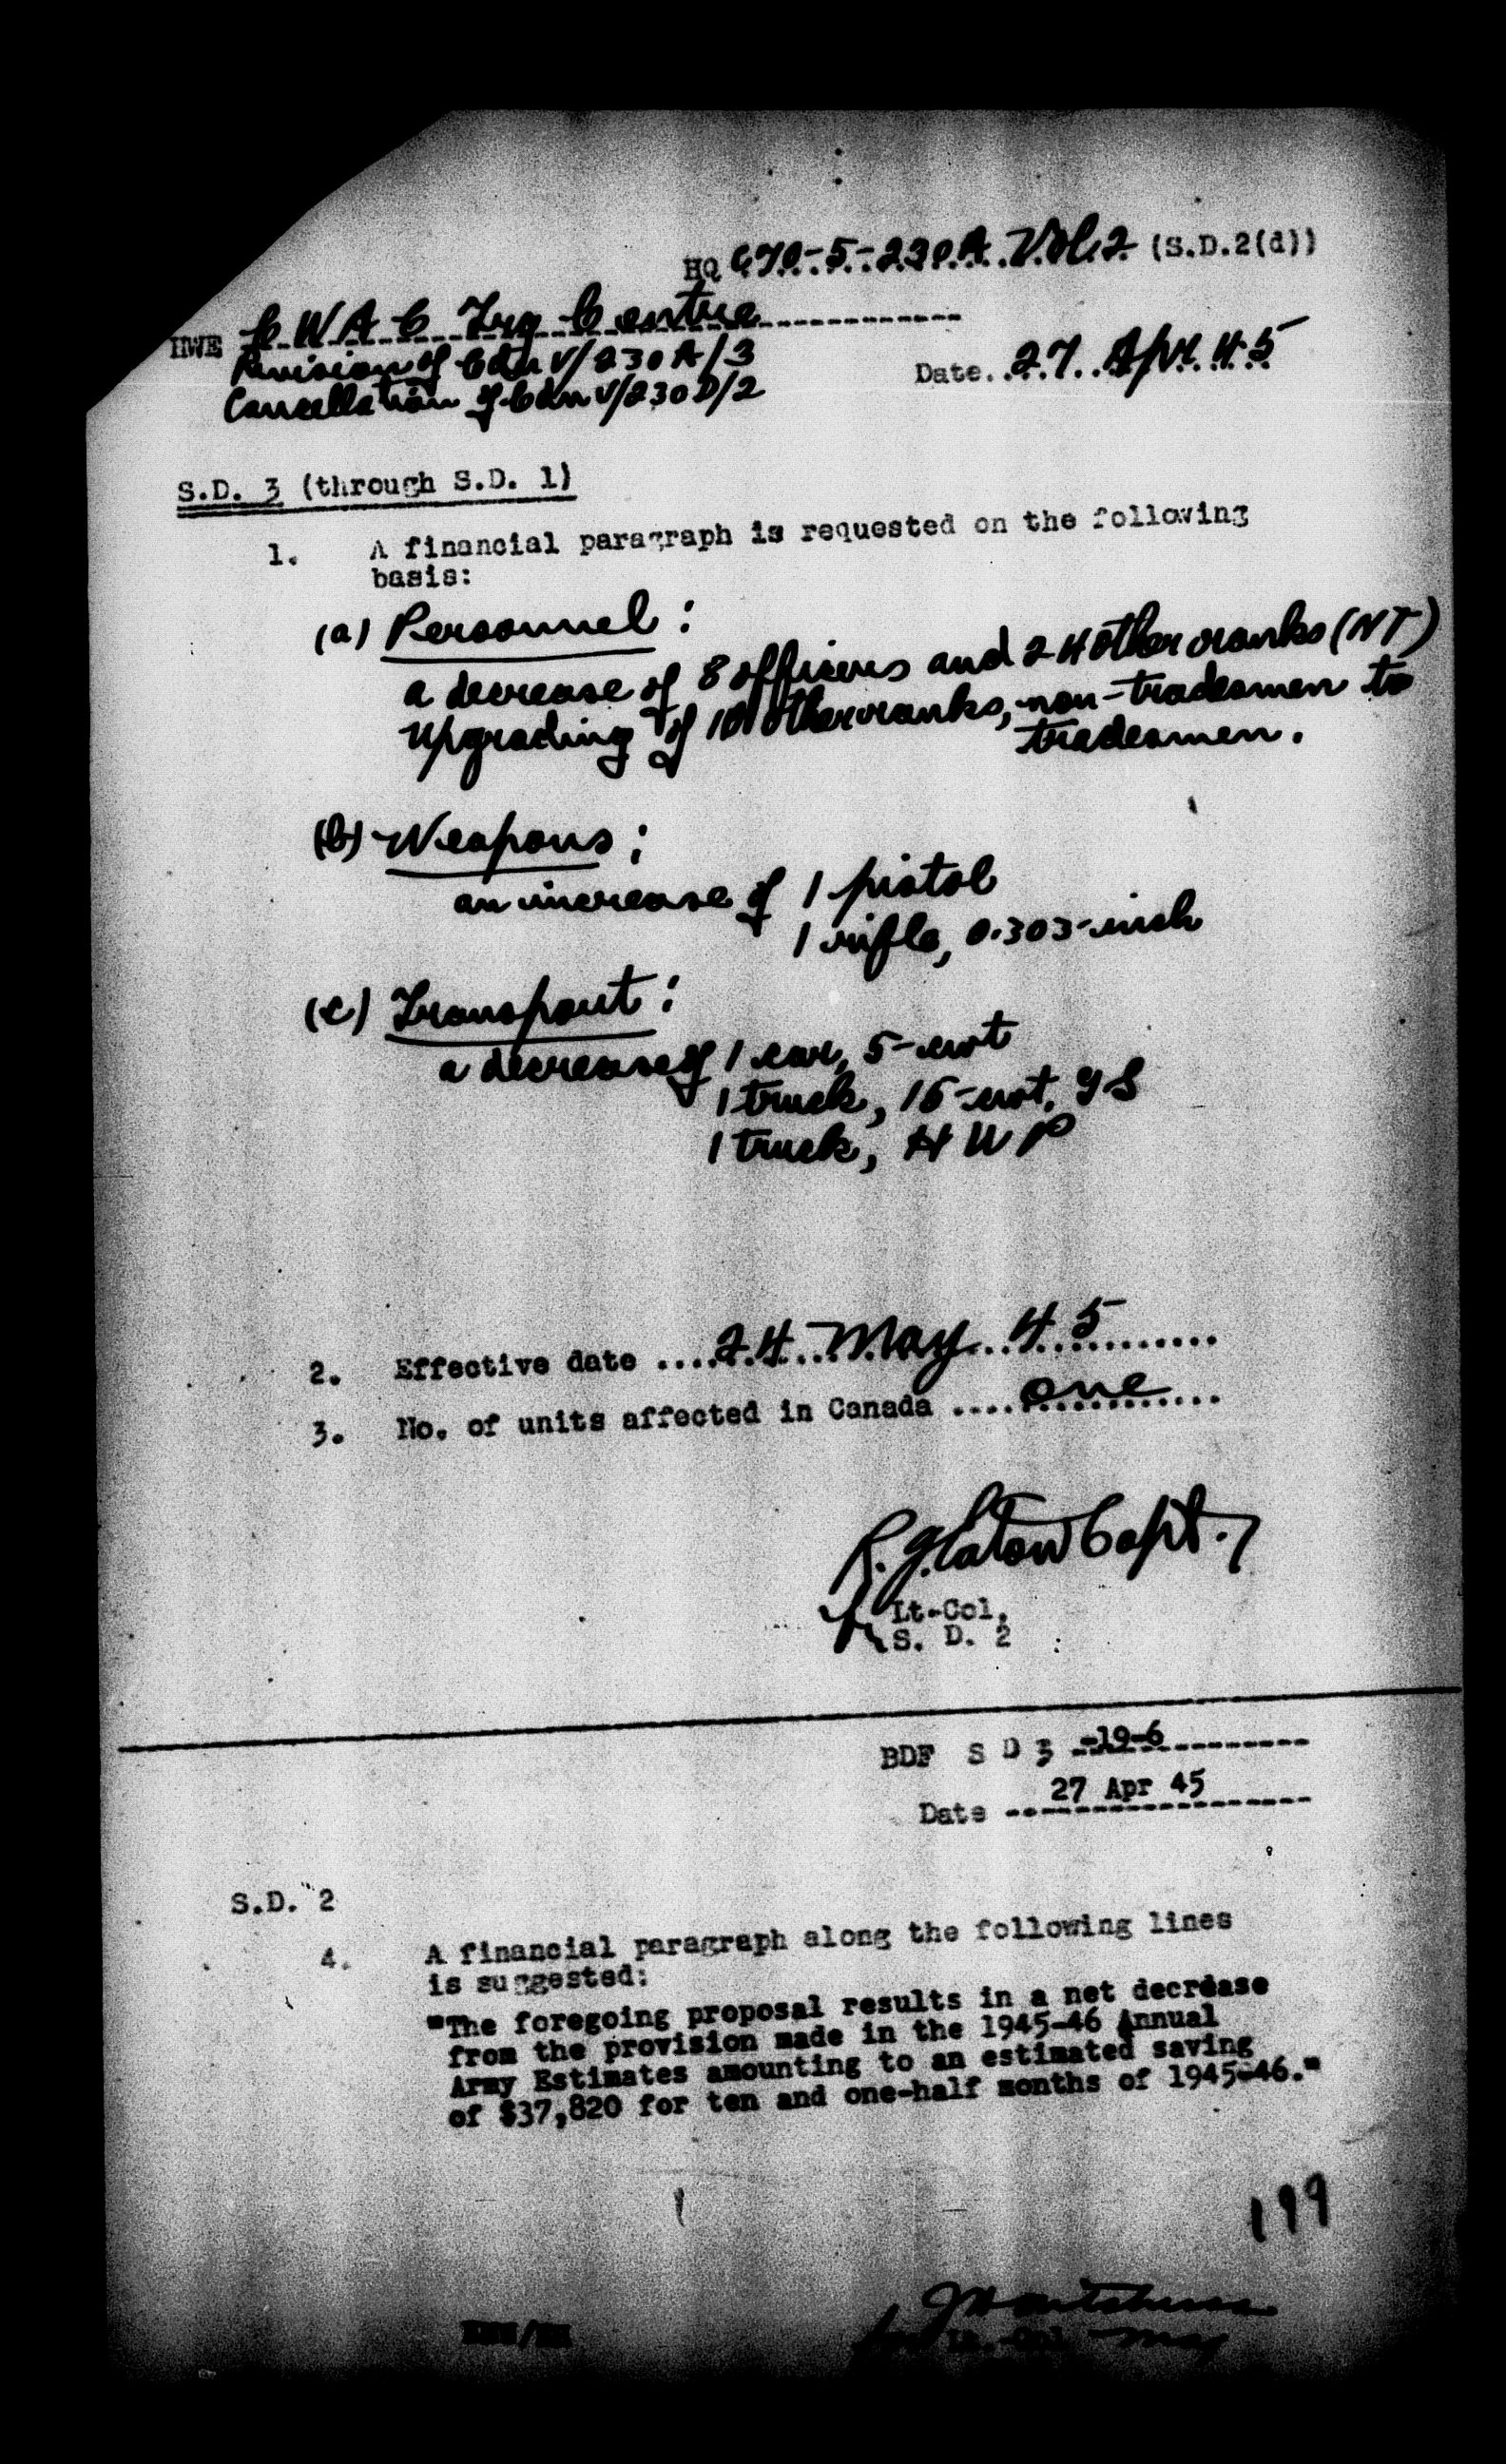 HQ 670-5-230A Vol. 2 (S.D.2(d))
HWE C W A C Trg Centre
Revision of Cdn V/230A/3
Cancellation of Cdn V/230D/2
Date. 27 Apr. 45
S.D. 3 (through S.D. 1)
1. A financial paragraph is requested on the following
basis:
(a) Personnel:
a decrease of 8 officers and 24 other ranks (NT)
upgrading of 10 other ranks, non-tradesmen to
tradesmen.
(b) Weapons:
an increase of 1 pistol
1 rifle, 0.303-inch
(c) Transport:
a decrease of 1 car, 5-cwt
1 truck, 15-cwt, GS
1 truck, H U P
2. Effective date ....24 May 45..........
3. No. of units affected in Canada ....one............
R. G. Capt.
for Lt-Col,
S. D. 2
BDF S D 3 -19-6
Date 27 Apr 45
S.D. 2
4. A financial paragraph along the following lines
is suggested:
"The foregoing proposal results in a net decrease
from the provision made in the 1945-46 Annual
Army Estimates amounting to an estimated saving
of $37,820 for ten and one-half months of 1945-46."
199
for Lt.-Col